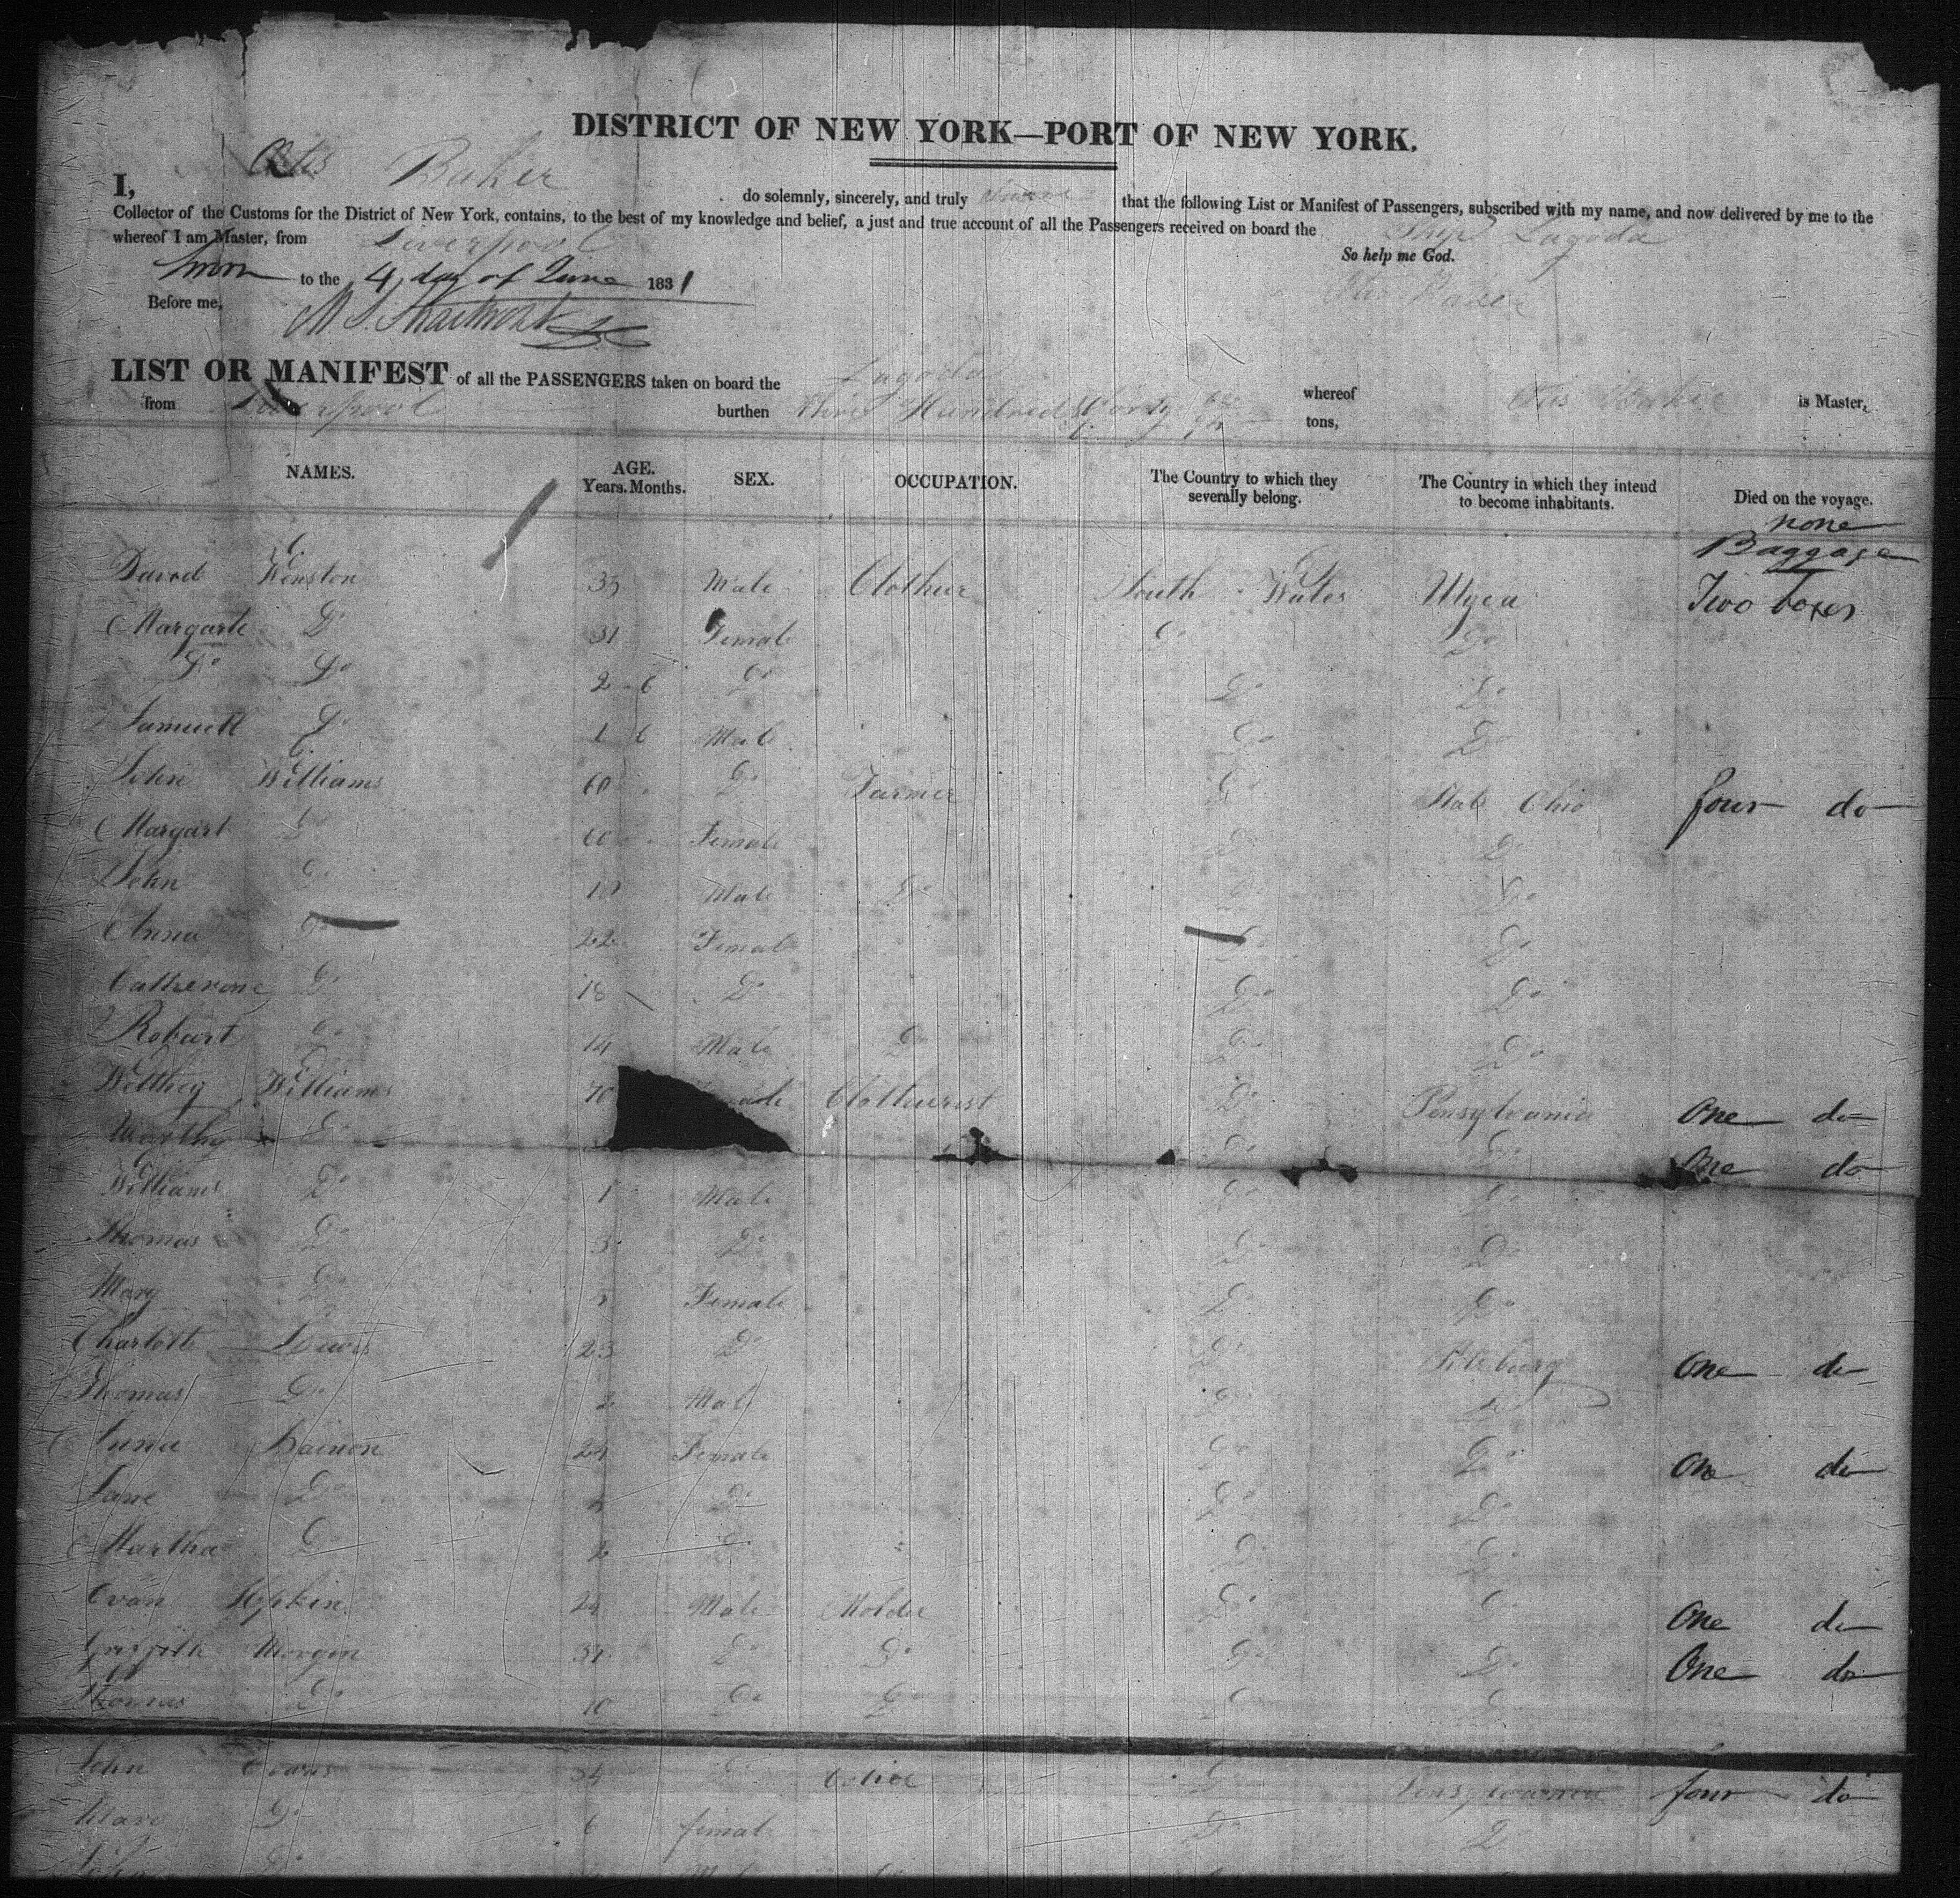 DISTRICT OF NEW YORK—PORT OF NEW YORK.
I, Otis Baker do solemnly, sincerely, and truly swear that the following List or Manifest of Passengers, subscribed with my name, and now delivered by me to the
Collector of the Customs for the District of New York, contains, to the best of my knowledge and belief, a just and true account of all the Passengers received on board the Ship Lagoda
whereof I am Master, from Liverpool
So help me God.
Sworn to the 4 day of June 1831
Otis Baker
Before me,
LIST OR MANIFEST of all the PASSENGERS taken on board the Lagoda whereof Otis Baker is Master,
from Liverpool burthen three Hundred & forty tons,
NAMES. AGE. Years. Months. SEX. OCCUPATION. The Country to which they severally belong. The Country in which they intend to become inhabitants. Died on the voyage.
none
Baggage
David Male Clothier South Wales Utyca Two boxes
Margarte Do 31 Female Do Do
Do Do 2 6 Do Do Do
Samuell Do 1 6 Male Do Do
John Williams 60 Do Farmer Do State Ohio four do
Margart Do 60 Female Do Do
John Do Male Do Do Do
Anna Do 22 Female Do Do
Catherine Do 18 Do Do Do
Robart Do 14 Male Do Do Do
Williams 70 Do Pensylvania One do
Do Do Do One do
William Do 1 Male Do Do
Thomas Do 3 Do Do Do
Mary Do Female Do Do
Charlotte Lewis 23 Do Do Pitsburg One do
Thomas Do 2 Male Do Do
Female Do Do One do
Jane Do Do Do Do
Martha Do Do Do Do
Evan Hopkin 24 Male Molder Do Do One do
Griffith Morgan Do Do Do Do One do
Thomas Do 10 Do Do Do Do
John Evans 34 Do Do Pensylvania four do
Mary Do 6 female Do Do
John Do